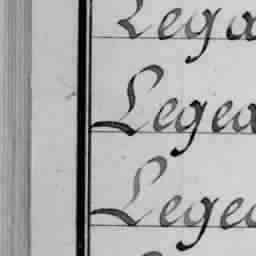 Lega
Legea
Legea